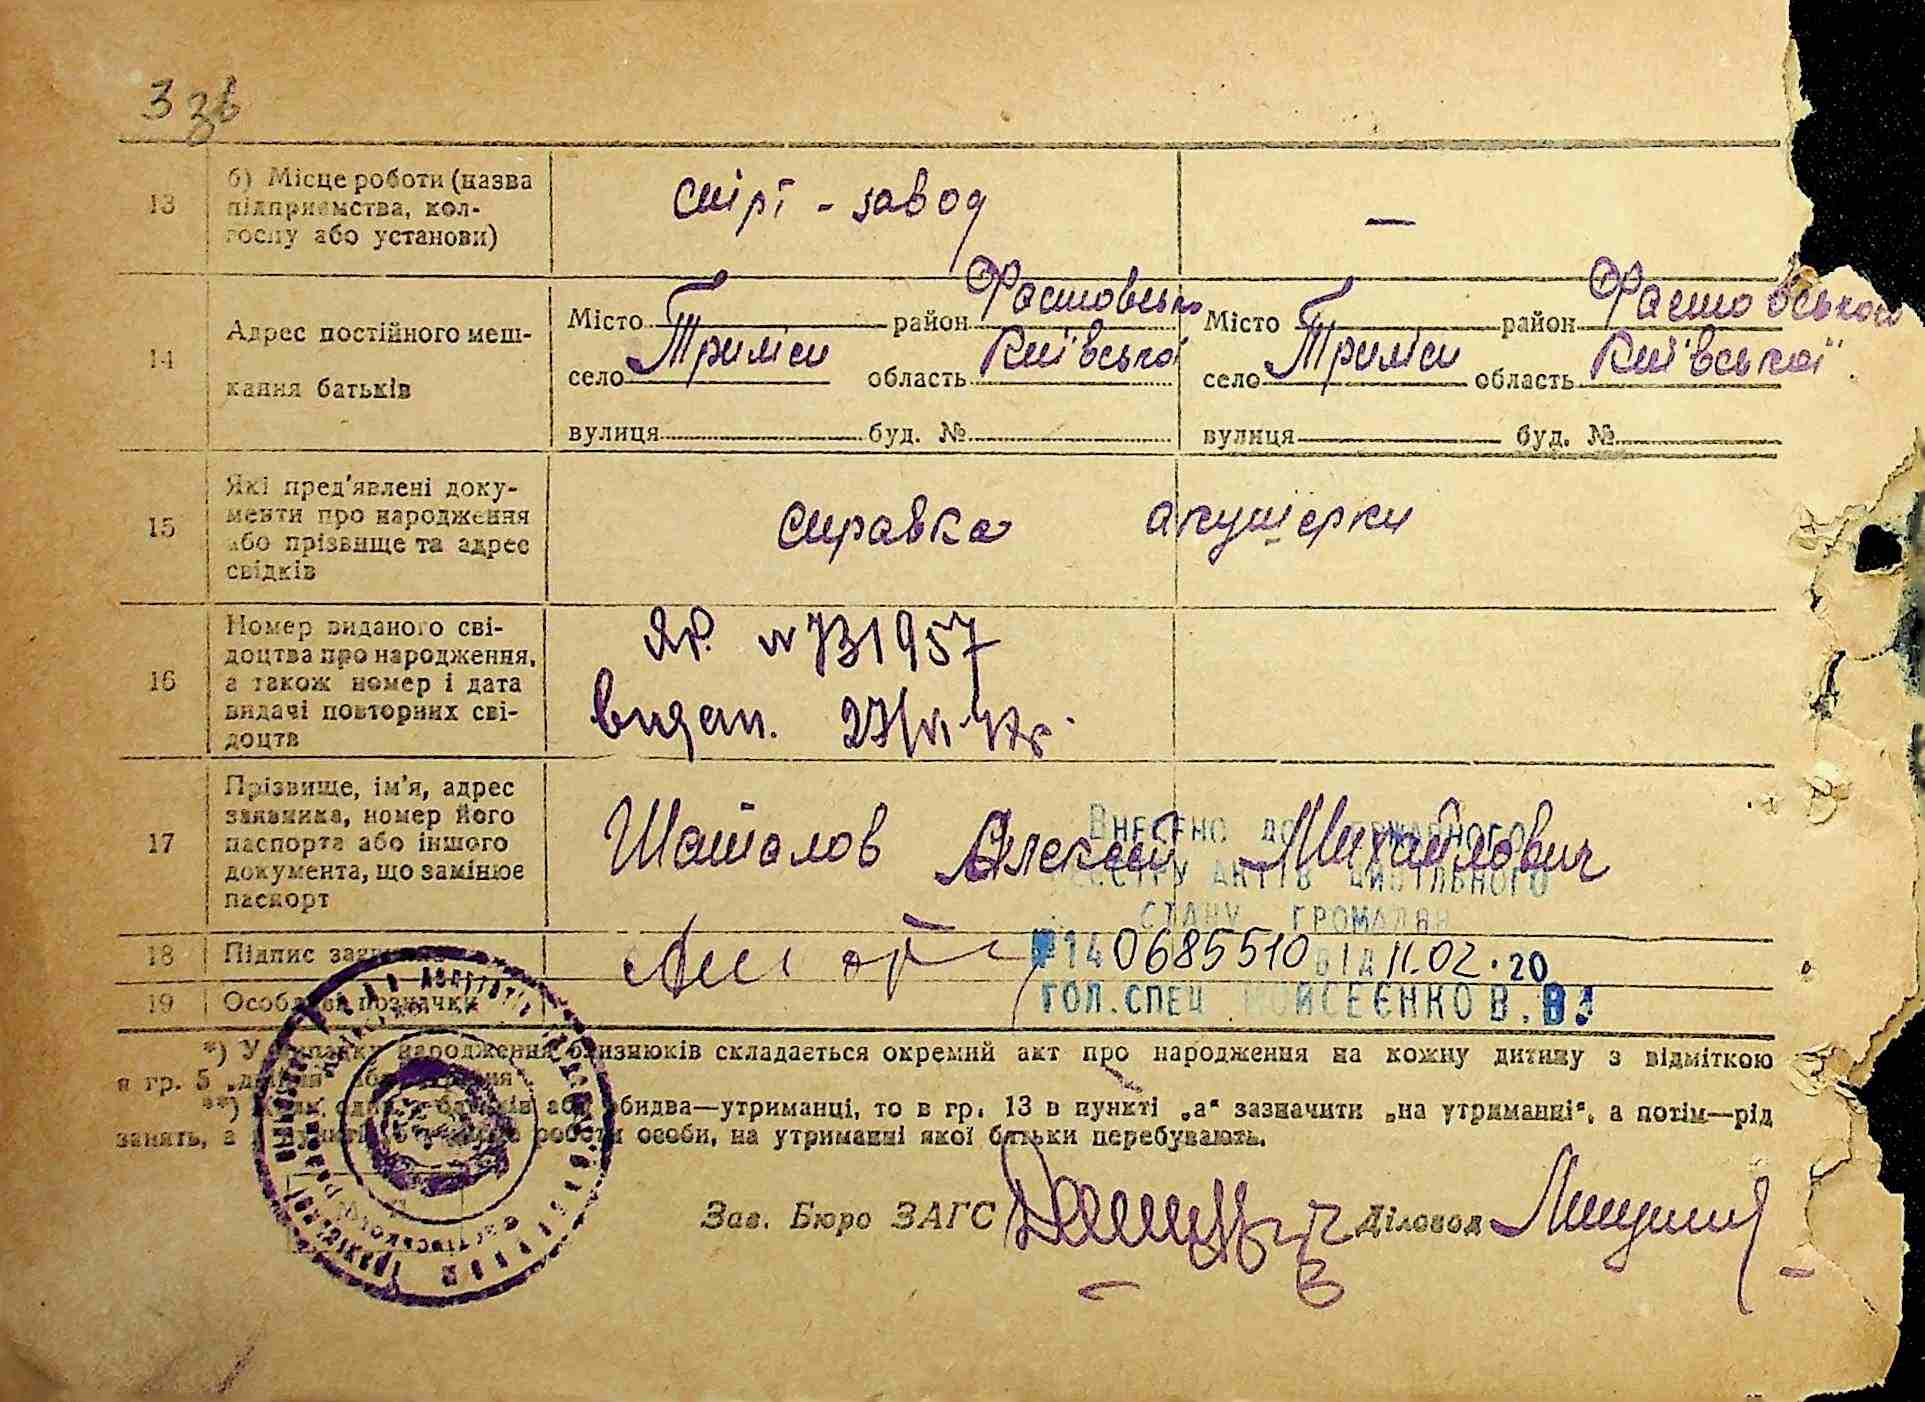 3 зв
13 б) Місце роботи (назва підприємства, колгоспу або установи) спірт - завод —
14 Адрес постійного мешкання батьків
Місто район Фастовсько Місто район Фастовської
село Триліси область Київської село Триліси область Київської
вулиця буд. № вулиця буд. №
15 Які пред'явлені документи про народження або прізвище та адрес свідків справка акушерки
16 Номер виданого свідоцтва про народження, а також номер і дата видачі повторних свідоцтв
ЯР. № 731957
видан. 27/VI
17 Прізвище, ім'я, адрес заявника, номер його паспорта або іншого документа, що замінює паспорт Шаталов Алексей Михайлович
ВНЕСЕНО ДО ДЕРЖАВНОГО
РЕЄСТРУ АКТІВ ЦИВІЛЬНОГО
СТАНУ ГРОМАДЯН
18 Підпис заявника
№ 140685510 ВІД 11.02.20
19 Особливі позначки
ГОЛ.СПЕЦ МОЙСЕЄНКО В.В.
*) У випадку народження близнюків складається окремий акт про народження на кожну дитину з відміткою
в гр. 5 „двійня" або „трійня".
**) Якщо один з батьків або обидва—утриманці, то в гр. 13 в пункті „а" зазначити „на утриманні", а потім—рід
занять, а в пункті „б" місце роботи особи, на утриманні якої батьки перебувають.
Зав. Бюро ЗАГС Діловод